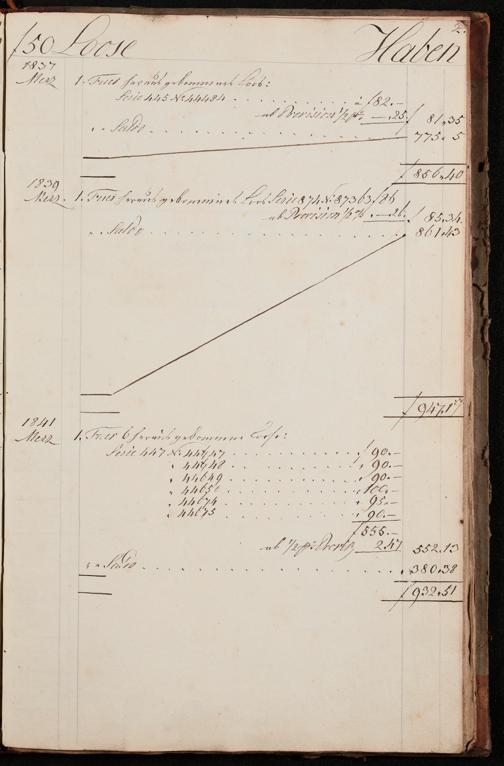 f50 Loose Haben 2.
1837
Merz 1. Fuer herausgekommenes Loos:
Serie 445 No 44484 . . . à f 82.—
ab Provision ½ pCt —.25. f 81.35
" " Saldo . . . 775. 5
f 856.40
1839
Merz. 1. Fuer herausgekommenes Los Serie 874 No 87363 f 86
ab Provision ½ % —.26. f 85.34.
" " Saldo . . . 861.43
f 947.17
1841
Merz 1. Fuer 6 herausgekommene Loose:
Serie 447 No 44647 . . . f 90.—
" 44648 . . . " 90.—
" 44649 . . . " 90.—
" 4465 . . . " 100.—
" 44674 . . . " 95.—
" 44675 . . . " 90.—
f 555.—
ab ½ 2.47 552.13
" " Saldo . . . 380.38
f 932.51